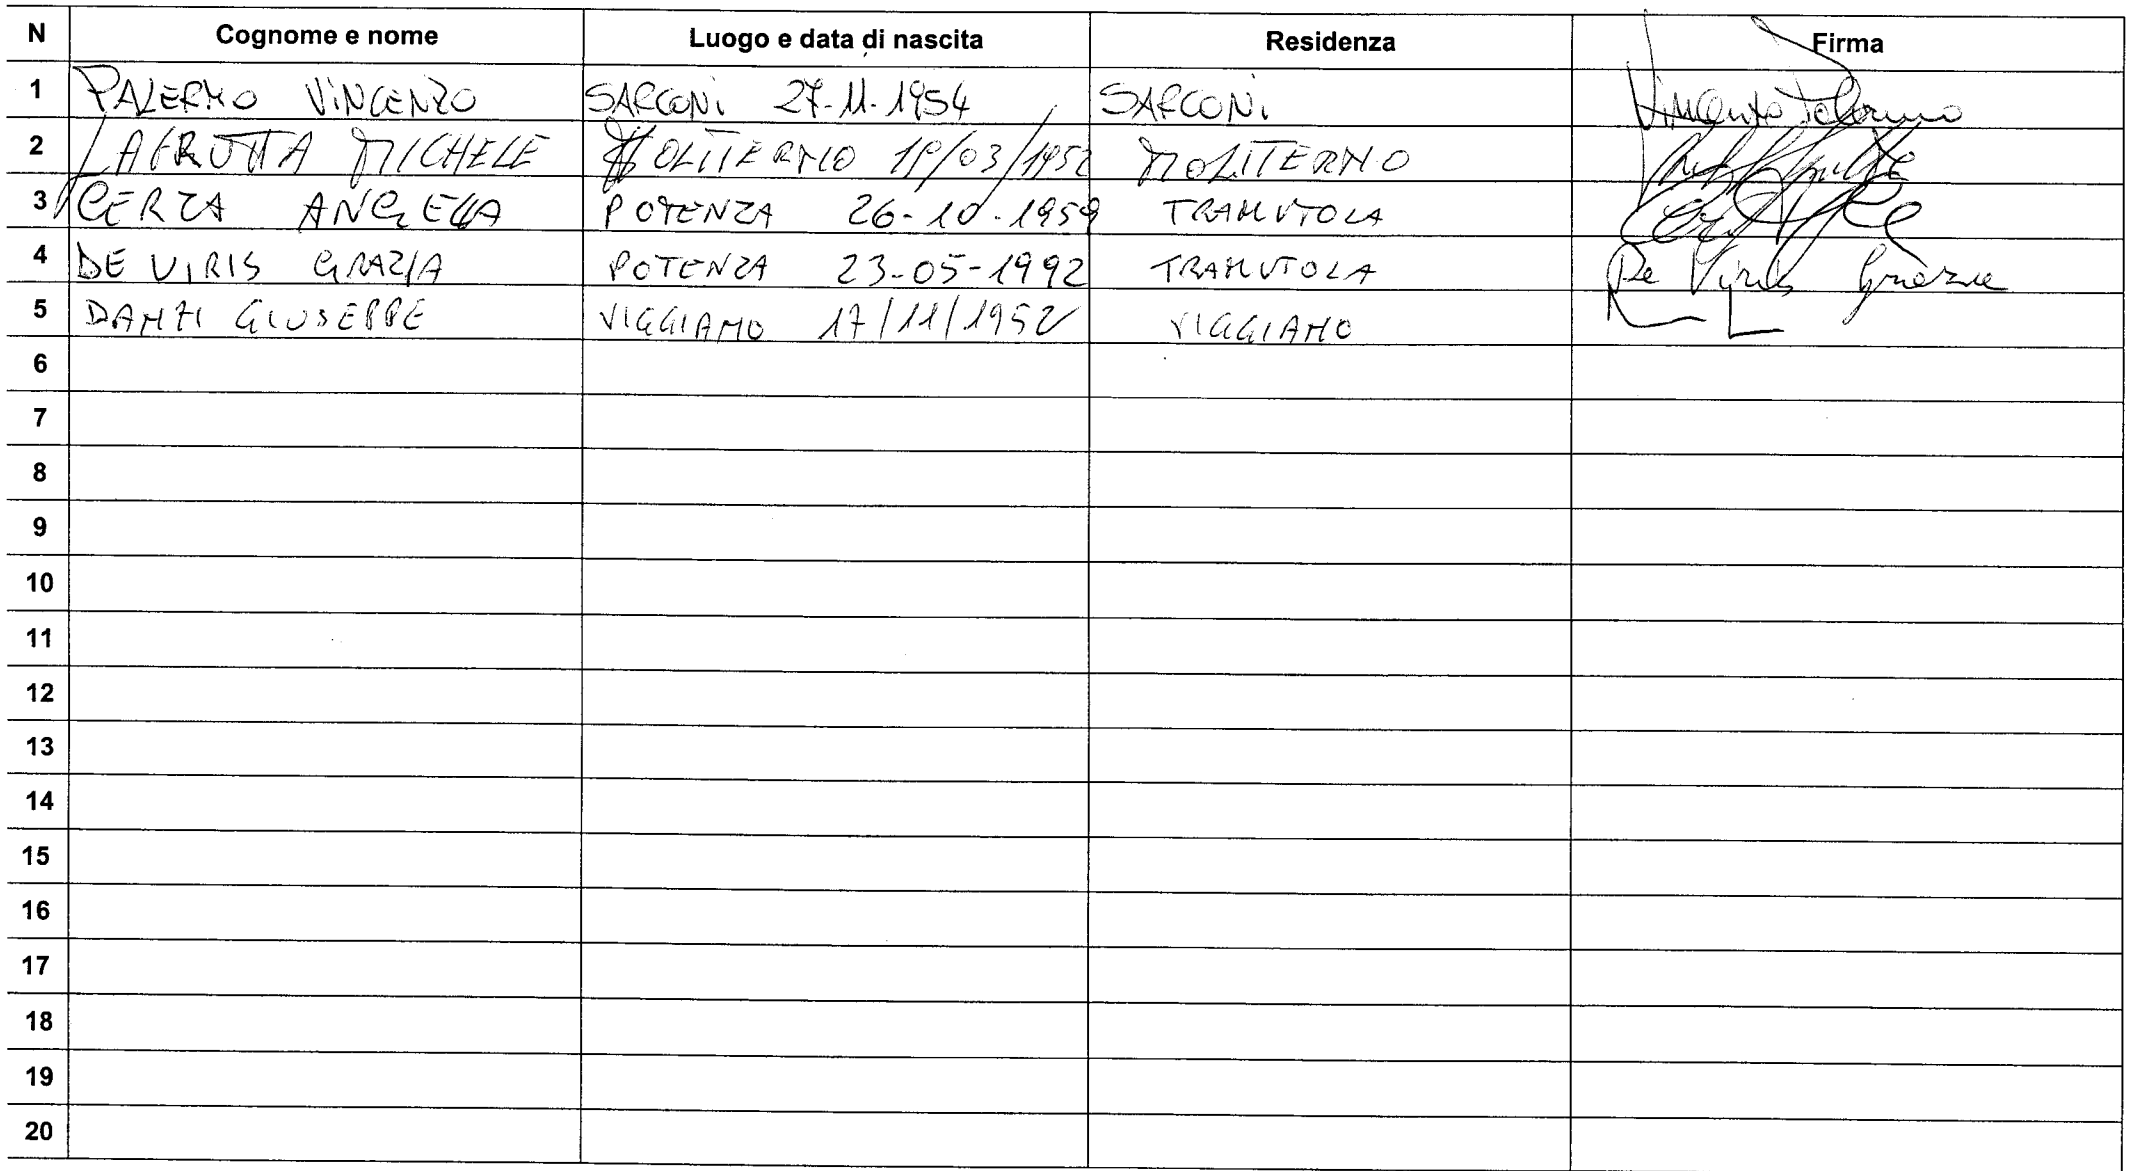 N Cognome e nome Luogo e data di nascita Residenza Firma
1 PALERMO VINCENZO SARCONI 27-11-1954 SARCONI Vincenzo Palermo
2 LAFRUTTA MICHELE MOLITERNO MOLITERNO
3 CERZA ANGELA POTENZA 26-10-1959 TRAMUTOLA
4 DE VIRIS GRAZIA POTENZA 23-05-1992 TRAMUTOLA De Viris Grazia
5 DANZI GIUSEPPE VIGGIANO 17/11/1952 VIGGIANO
6
7
8
9
10
11
12
13
14
15
16
17
18
19
20